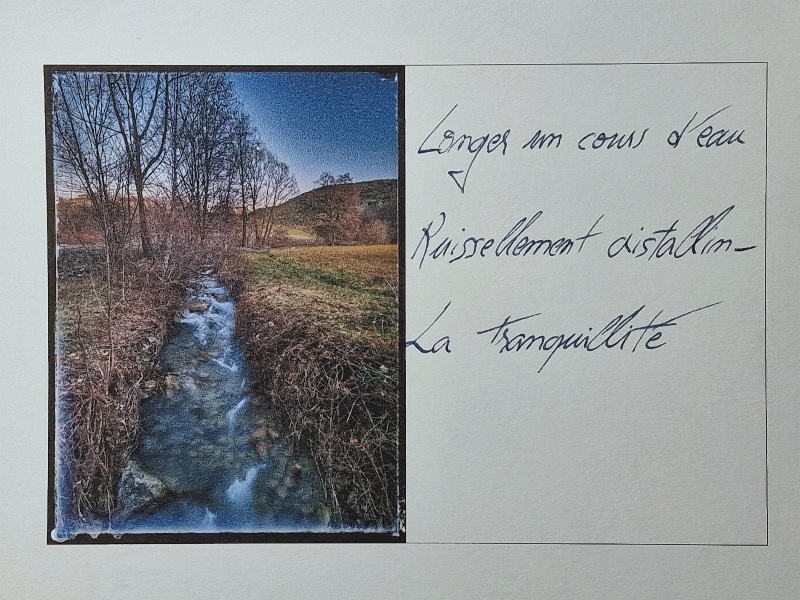 Longer un cours d'eau
Ruissellement cristallin –
La tranquillité